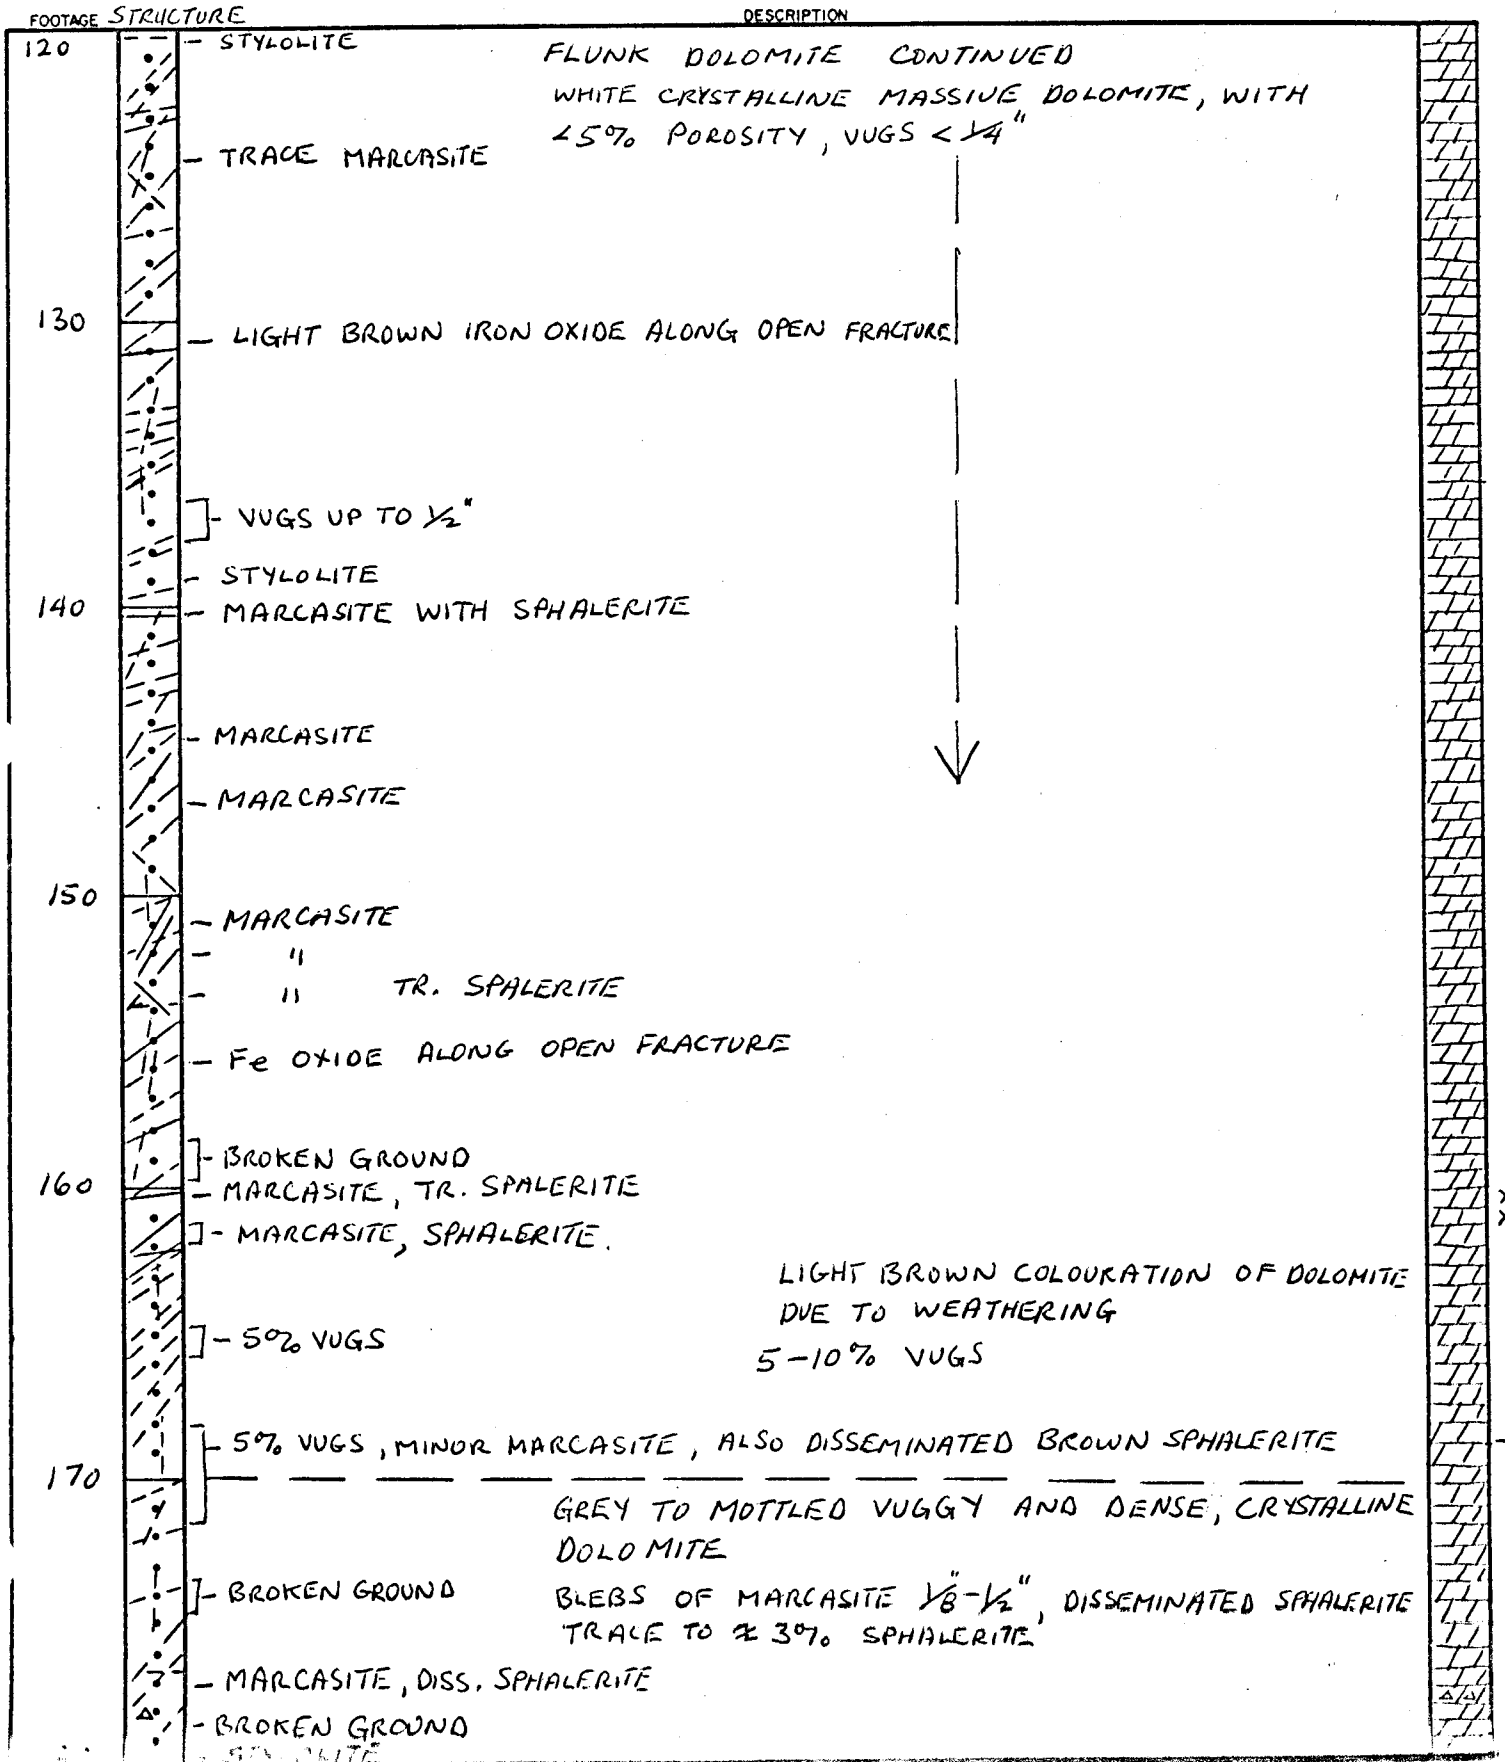 FOOTAGE STRUCTURE DESCRIPTION
120 - STYLOLITE FLUNK DOLOMITE CONTINUED
WHITE CRYSTALLINE MASSIVE DOLOMITE, WITH
<5% POROSITY, VUGS < 1/4"
- TRACE MARCASITE
130
- LIGHT BROWN IRON OXIDE ALONG OPEN FRACTURE
- VUGS UP TO 1/2"
- STYLOLITE
140 - MARCASITE WITH SPHALERITE
- MARCASITE
- MARCASITE
150
- MARCASITE
- "
- " TR. SPALERITE
- Fe OXIDE ALONG OPEN FRACTURE
- BROKEN GROUND
160 - MARCASITE, TR. SPALERITE
- MARCASITE, SPHALERITE.
LIGHT BROWN COLOURATION OF DOLOMITE
DUE TO WEATHERING
- 5% VUGS
5-10% VUGS
- 5% VUGS, MINOR MARCASITE, ALSO DISSEMINATED BROWN SPHALERITE
170
GREY TO MOTTLED VUGGY AND DENSE, CRYSTALLINE
DOLOMITE
- BROKEN GROUND BLEBS OF MARCASITE 1/8"-1/2", DISSEMINATED SPHALERITE
TRACE TO ≈ 3% SPHALERITE
- MARCASITE, DISS. SPHALERITE
- BROKEN GROUND